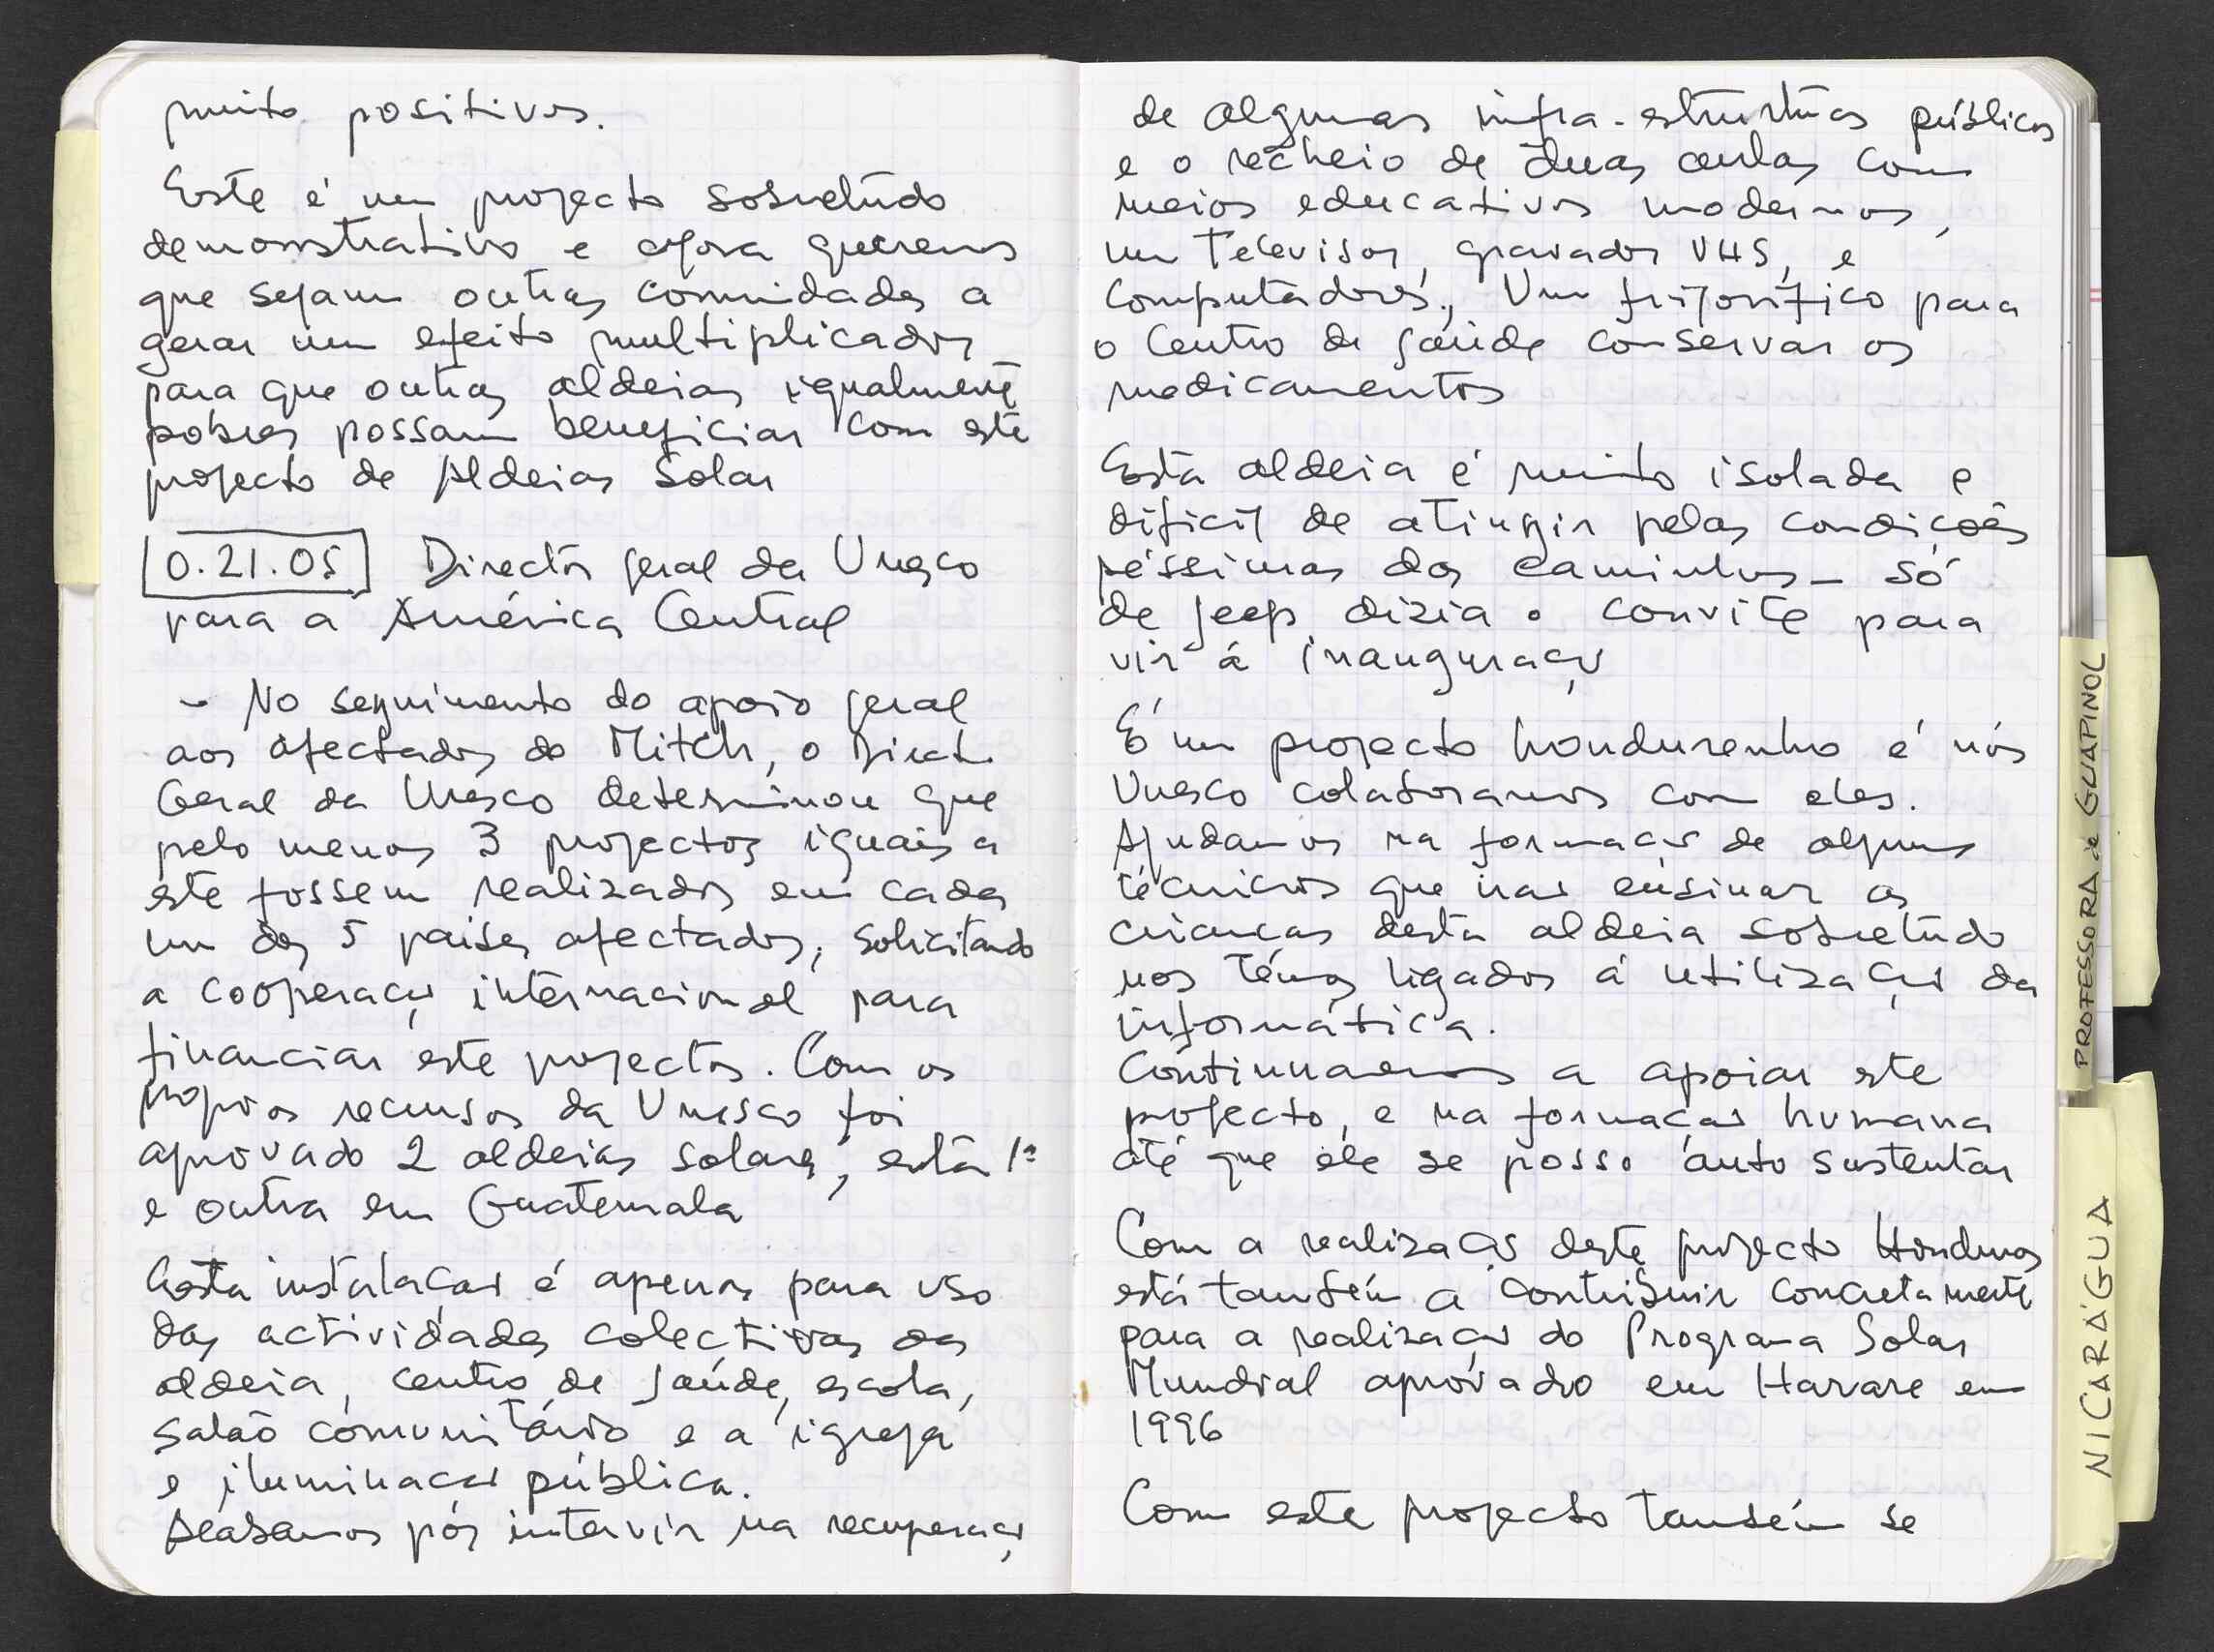 muito positivos.
Este é um projecto sobretudo
demonstrativo e agora queremos
que sejam outras comunidades a
gerar um efeito multiplicador
para que outras aldeias igualmente
pobres possam beneficiar com este
projecto de Aldeias Solar
0.21.05 Director geral da Unesco
para a América Central
- No seguimento do apoio geral
aos afectados do Mitch, o Direct.
Geral da Unesco determinou que
pelo menos 3 projectos iguais a
este fossem realizados em cada
um dos 5 paises afectados, solicitando
a cooperação internacional para
financiar este projectos. Com os
proprios recursos da Unesco foi
aprovado 2 aldeias solares, esta 1ª
e outra em Guatemala
Esta instalação é apenas para uso
das actividades colectivas da
aldeia, centro de saúde, escola,
salão comunitário e a igreja
e iluminação pública.
Acabamos por intervir na recuperação
de algumas infra-estruturas públicas
e o recheio de duas aulas com
meios educativos modernos,
um televisor, gravador VHS, e
computadores, Um frigorífico para
o Centro de saúde conservar os
medicamentos
Esta aldeia é muito isolada e
dificil de atingir pelas condições
péssimas dos caminhos - só
de jeep dizia o convite para
vir á inauguração
É um projecto hondurenho e nós
Unesco colaboramos com eles.
Ajudamos na formação de alguns
técnicos que irão ensinar as
crianças desta aldeia sobretudo
nos temas ligados á utilização da
informática.
Continuaremos a apoiar este
projecto, e na formação humana
até que ele se possa auto sustentar
Com a realização deste projecto Honduras
está também a contribuir concretamente
para a realização do Programa Solar
Mundial aprovado em Harare em
1996
Com este projecto também se
PROFESSORA de GUAPINOL
NICARÁGUA